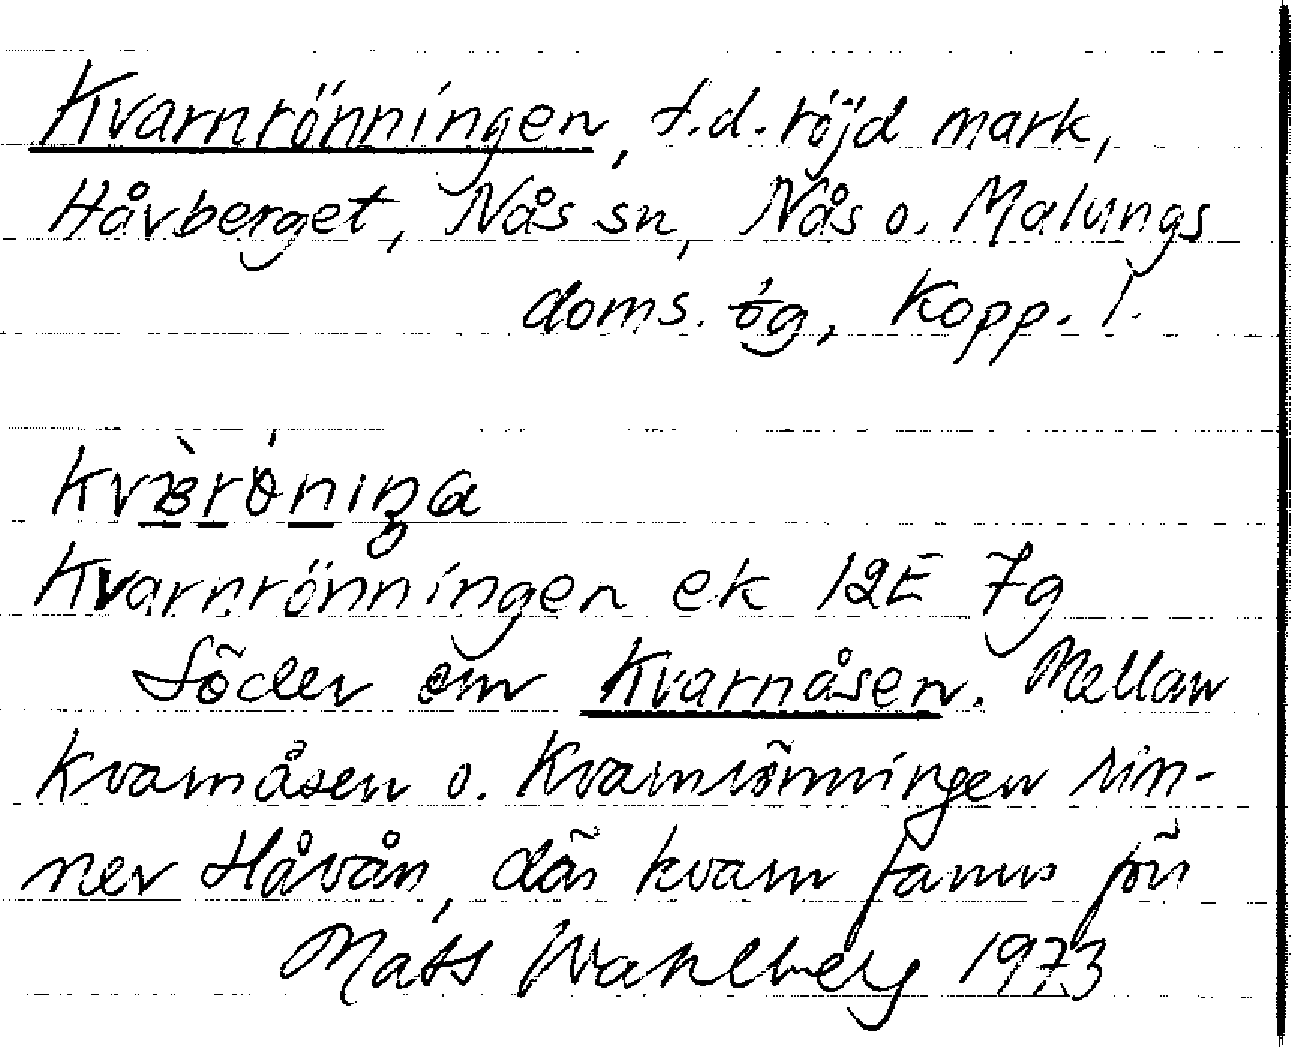 Kvarnrönningen, f.d. röjd mark,
Håvberget, Nås sn, Nås o. Malungs
doms. tg, Kopp. l.
Kvarnrönningen ek 12E 7g
Söder om Kvarnåsen. Mellan
Kvarnåsen o. Kvarnrönningen rin-
ner Håvån, där kvarn fanns förr
Mats Wahlberg 1973